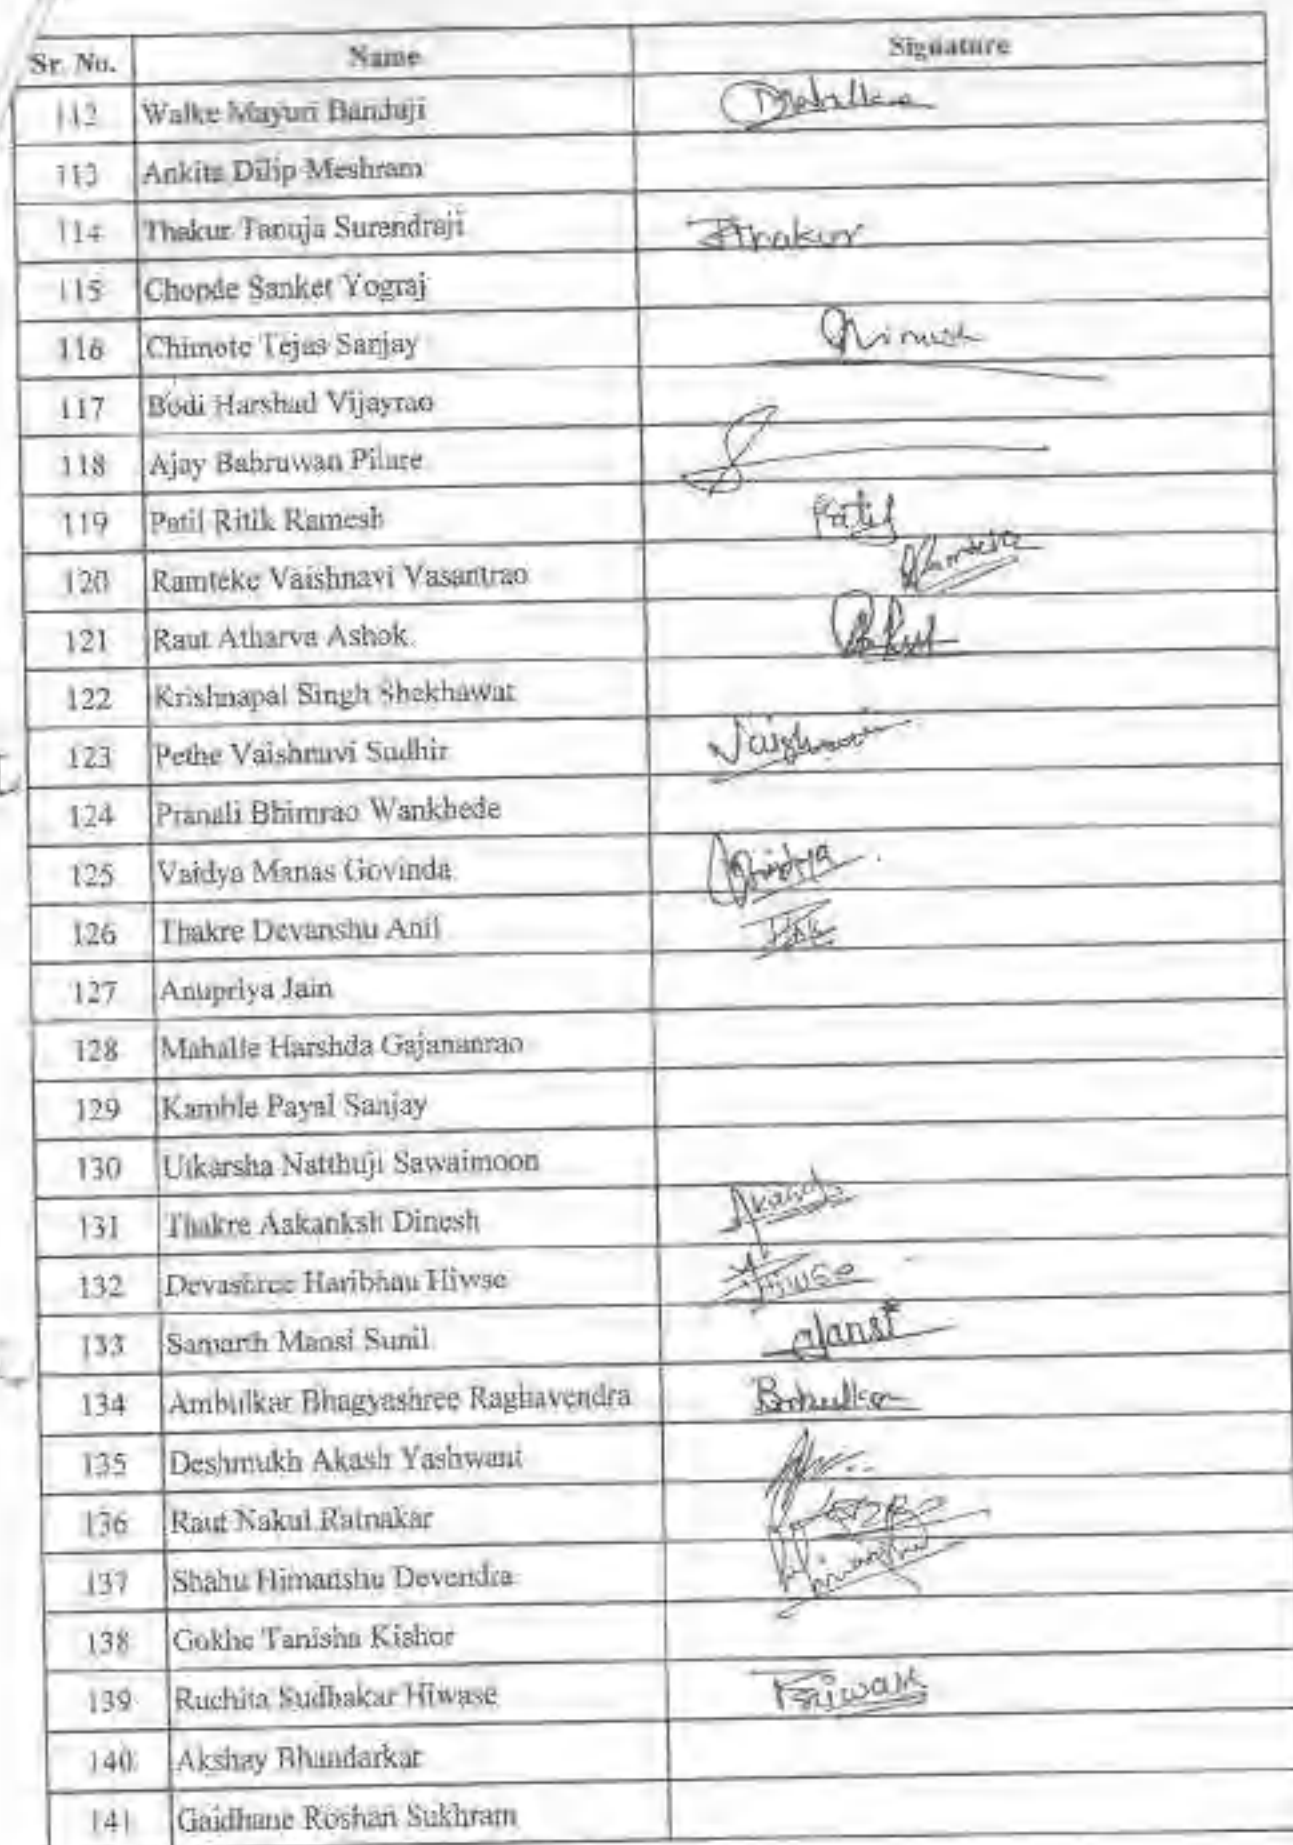 Sr. No. Name Signature
112 Walke Mayuri Banduji
113 Ankita Dilip Meshram
114 Thakur Tanuja Surendraji Thakur
115 Chopde Sanket Yograj
116 Chimote Tejas Sanjay
117 Bodi Harshad Vijayrao
118 Ajay Babruwan Pilare
119 Patil Ritik Ramesh Patil
120 Ramteke Vaishnavi Vasantrao Ramteke
121 Raut Atharva Ashok
122 Krishnapal Singh Shekhawat
123 Pethe Vaishnavi Sudhir Vaishnavi
124 Pranali Bhimrao Wankhede
125 Vaidya Manas Govinda
126 Thakre Devanshu Anil
127 Anupriya Jain
128 Mahalle Harshda Gajananrao
129 Kamble Payal Sanjay
130 Utkarsha Natthuji Sawaimoon
131 Thakre Aakanksh Dinesh
132 Devashree Haribhau Hiwse
133 Samarth Mansi Sunil Mansi
134 Ambulkar Bhagyashree Raghavendra
135 Deshmukh Akash Yashwant
136 Raut Nakul Ratnakar
137 Shahu Himanshu Devendra Himanshu
138 Gokhe Tanisha Kishor
139 Ruchita Sudhakar Hiwase
140 Akshay Bhandarkar
141 Gaidhane Roshan Sukhram